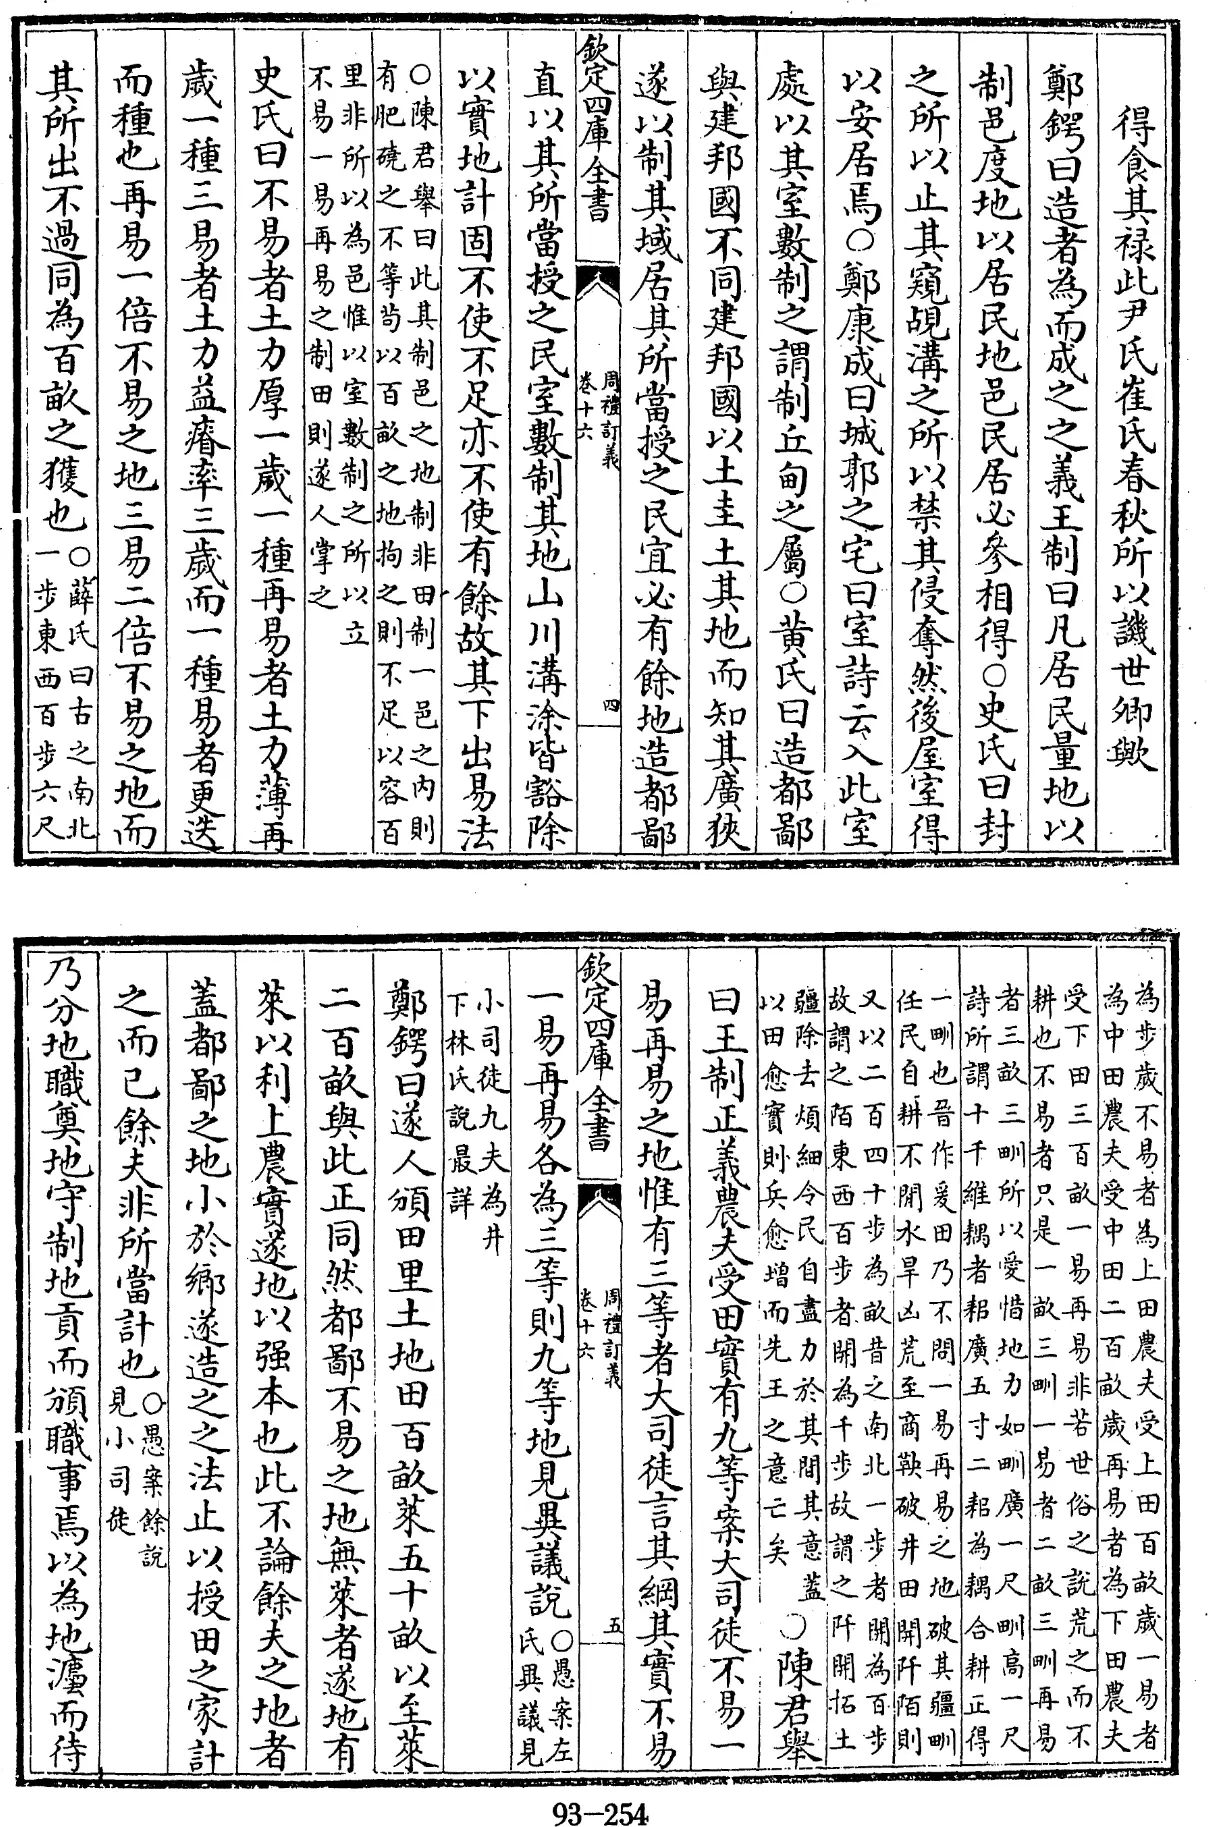 得食其祿此尹氏崔氏春秋所以譏世卿歟
鄭鍔曰造者為而成之之義王制曰凡居民量地以
制邑度地以居民地邑民居必參相得○史氏曰封
之所以止其窺覘溝之所以禁其侵奪然後屋室得
以安居焉○鄭康成曰城郭之宅曰室詩云入此室
處以其室數制之謂制丘甸之屬○黃氏曰造都鄙
與建邦國不同建邦國以土圭土其地而知其廣狹
遂以制其域居其所當授之民宜必有餘地造都鄙
欽定四庫全書
周禮訂義
卷十六
四
直以其所當授之民室數制其地山川溝涂皆豁除
以實地計固不使不足亦不使有餘故其下出易法
○陳君舉曰此其制邑之地制非田制一邑之內則
有肥磽之不等茍以百畝之地拘之則不足以容百
里非所以為邑惟以室數制之所以立
不易一易再易之制田則遂人掌之
史氏曰不易者土力厚一歲一種再易者土力薄再
歲一種三易者土力益瘠率三歲而一種易者更迭
而種也再易一倍不易之地三易二倍不易之地而
其所出不過同為百畝之獲也
○薛氏曰古之南北
一步東西百步六尺
為步歲不易者為上田農夫受上田百畝歲一易者
為中田農夫受中田二百畝歲再易者為下田農夫
受下田三百畝一易再易非若世俗之說荒之而不
耕也不易者只是一畝三甽一易者二畝三甽再易
者三畝三甽所以愛惜地力如甽廣一尺甽高一尺
詩所謂十千維耦者耜廣五寸二耜為耦合耕正得
一甽也晉作爰田乃不問一易再易之地破其疆甽
任民自耕不閒水旱凶荒至商鞅破井田開阡陌則
又以二百四十步為畝昔之南北一步者開為百步
故謂之陌東西百步者開為千步故謂之阡開拓土
疆除去煩細令民自盡力於其間其意蓋
以田愈實則兵愈增而先王之意亡矣
○陳君舉
曰王制正義農夫受田實有九等案大司徒不易一
易再易之地惟有三等者大司徒言其綱其實不易
欽定四庫全書
周禮訂義
卷十六
五
一易再易各為三等則九等地見異議說
○愚案左
氏異議見
小司徒九夫為井
下林氏說最詳
鄭鍔曰遂人頒田里土地田百畝萊五十畝以至萊
二百畝與此正同然都鄙不易之地無萊者遂地有
萊以利上農實遂地以强本也此不論餘夫之地者
蓋都鄙之地小於鄉遂造之之法止以授田之家計
之而已餘夫非所當計也
○愚案餘說
見小司徒
乃分地職奠地守制地貢而頒職事焉以為地灋而待
93-254